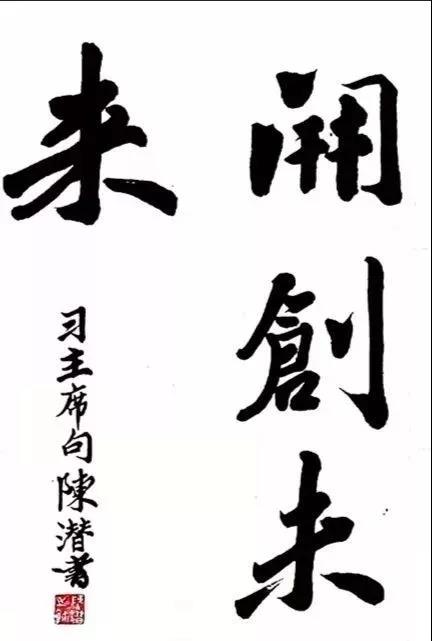 開創未
来
习主席句陳潜書